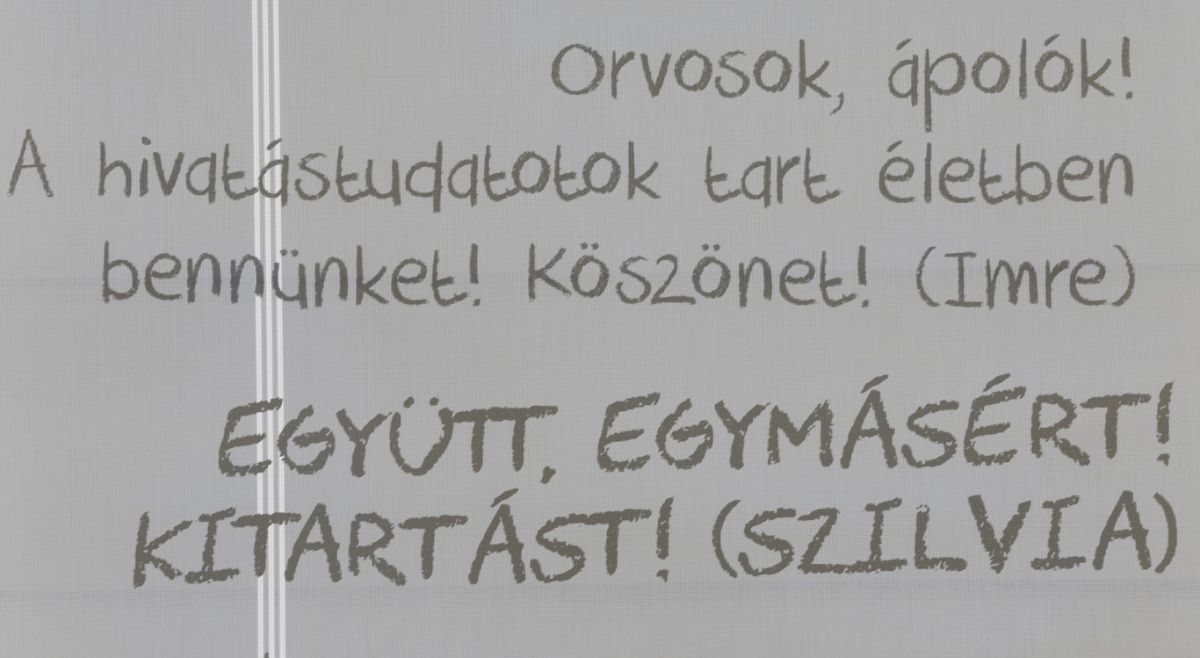 Orvosok, ápolók!
A hivatástudatotok tart életben
bennünket! Köszönet! (Imre)
EGYÜTT, EGYMÁSÉRT!
KITARTÁST! (SZILVIA)